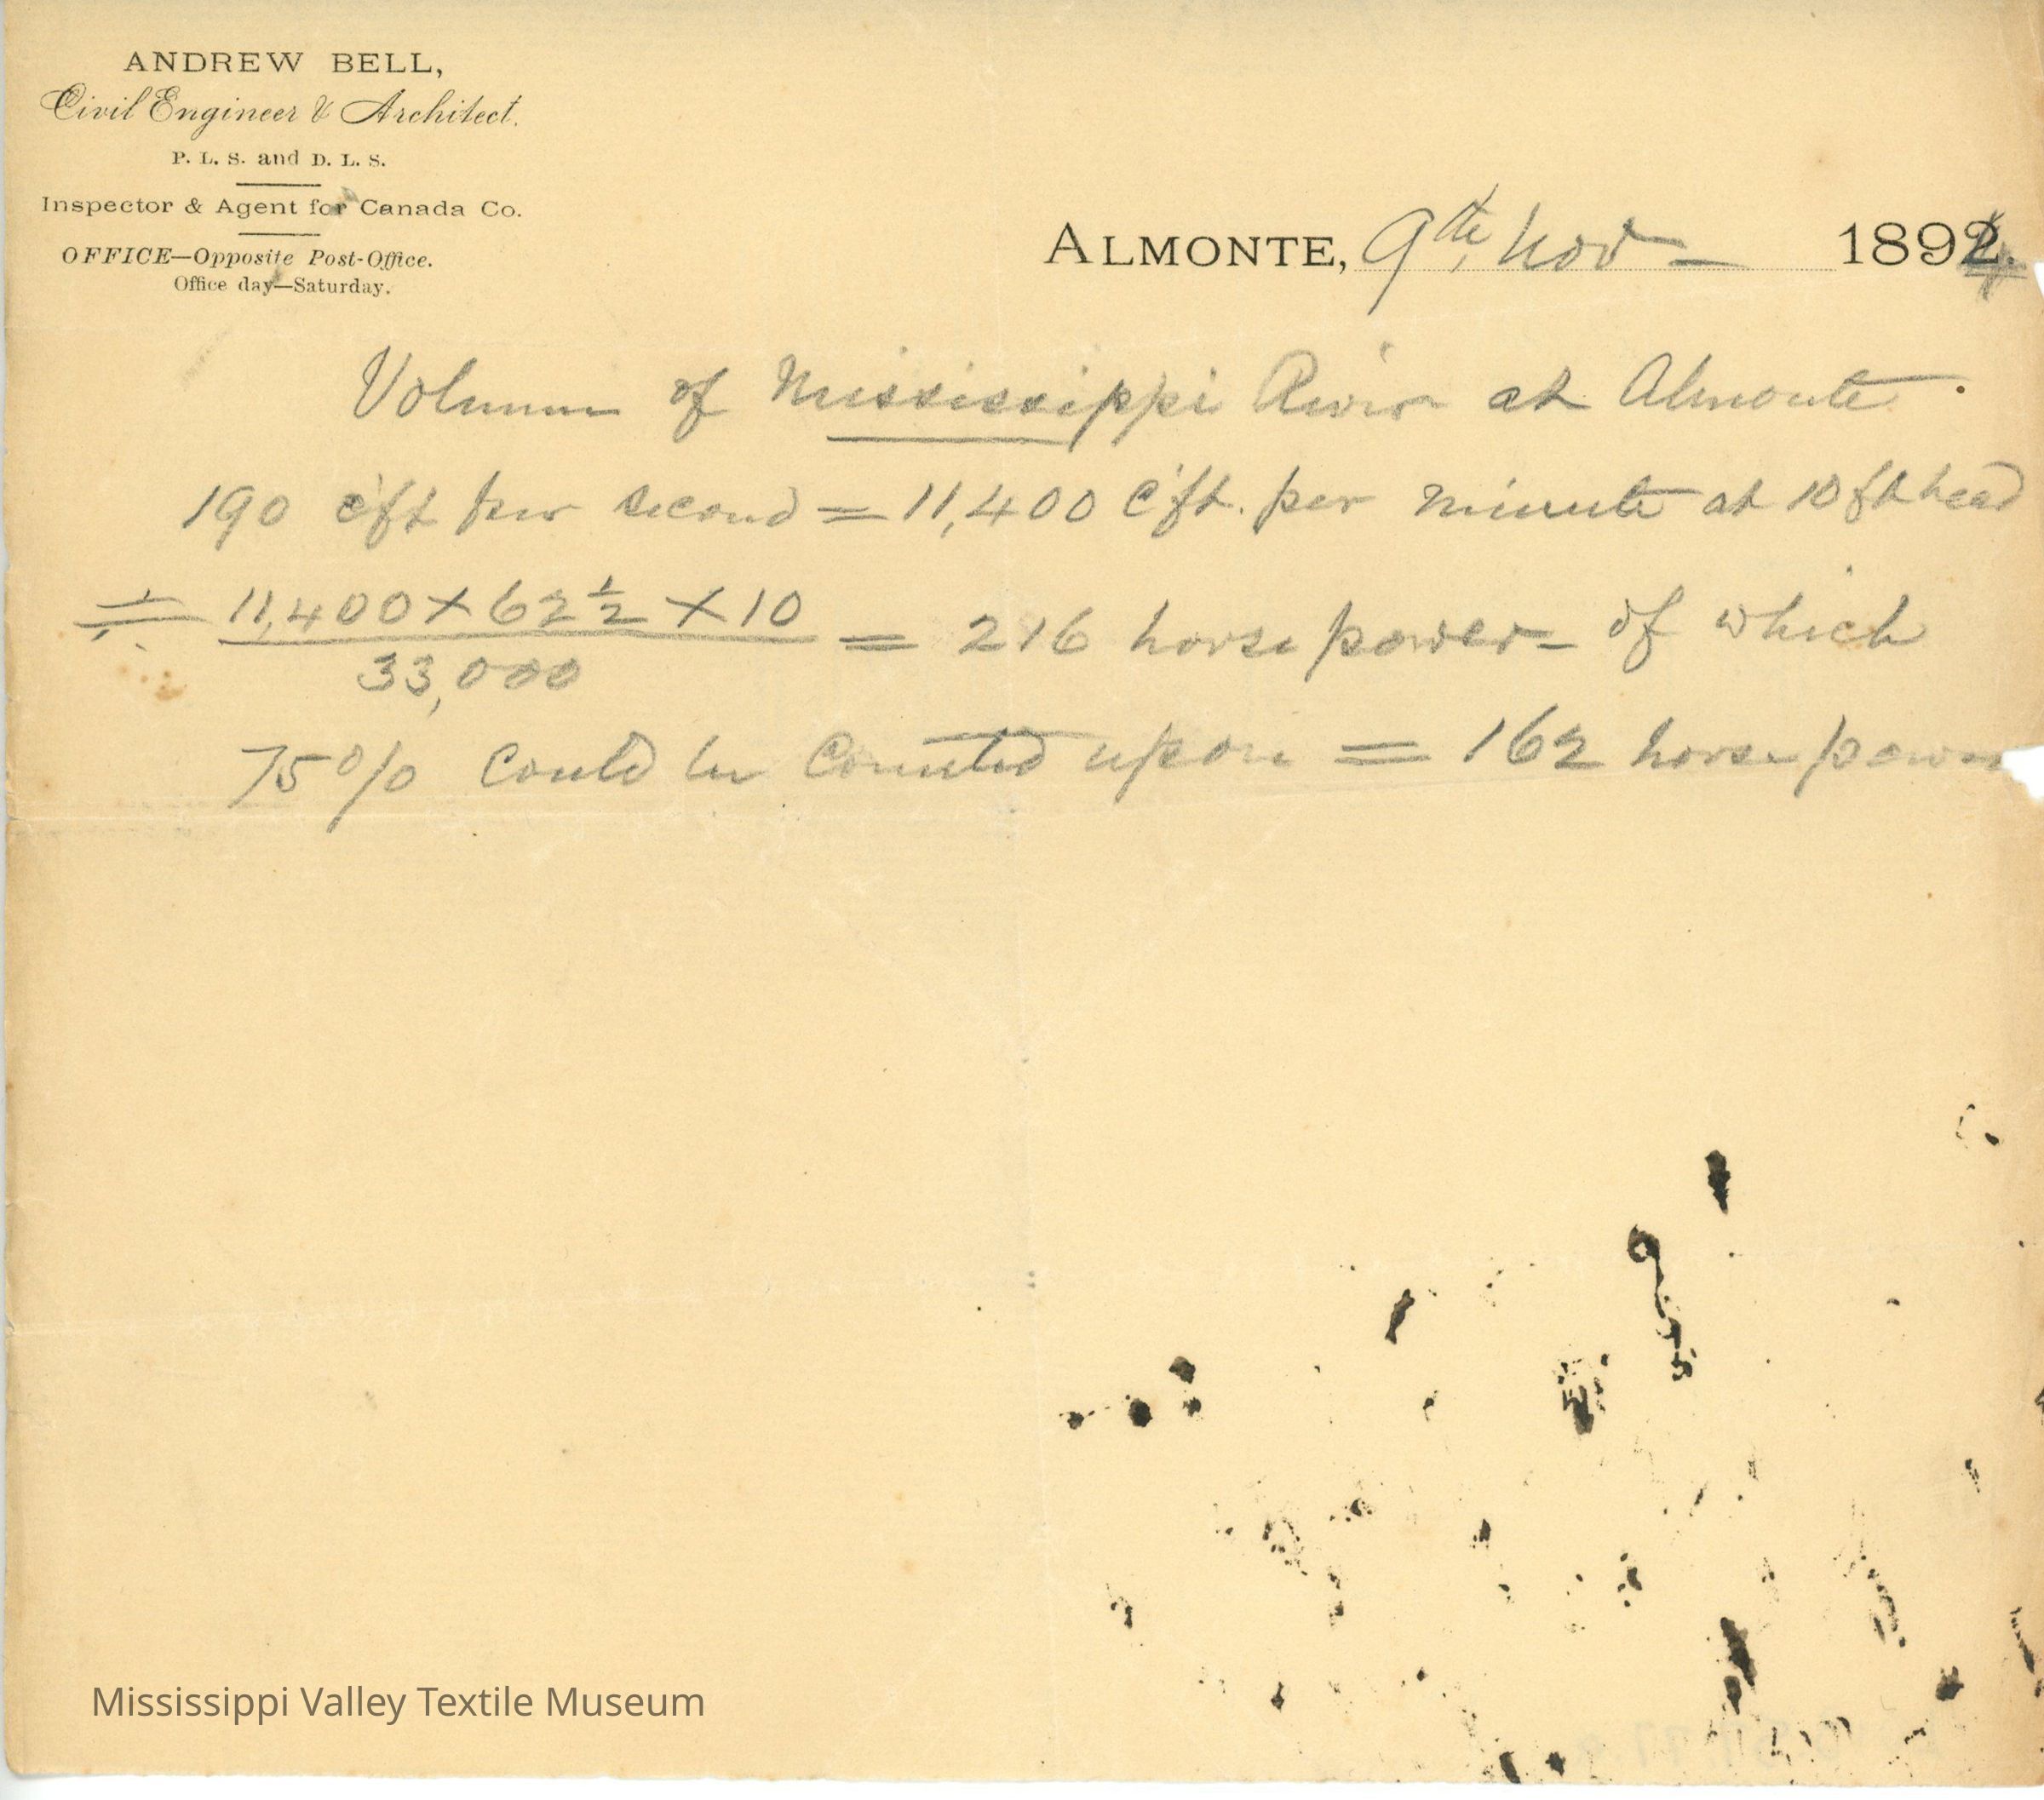 ANDREW BELL,
Civil Engineer & Architect.
P. L. S. and D. L. S.
Inspector & Agent for Canada Co.
OFFICE—Opposite Post-Office.
Office day—Saturday.
ALMONTE, 9th, Nov — 1894
Volume of Mississippi River at Almonte.
190 c'ft per second = 11,400 c'ft. per minute at 10 ft head
÷ 11,400 × 62 1/2 × 10 / 33,000 = 216 horse power — of which
75% could be counted upon = 162 horse power
Mississippi Valley Textile Museum